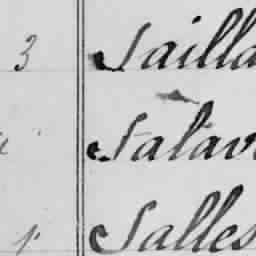 3 Sailla
Salav
Salles